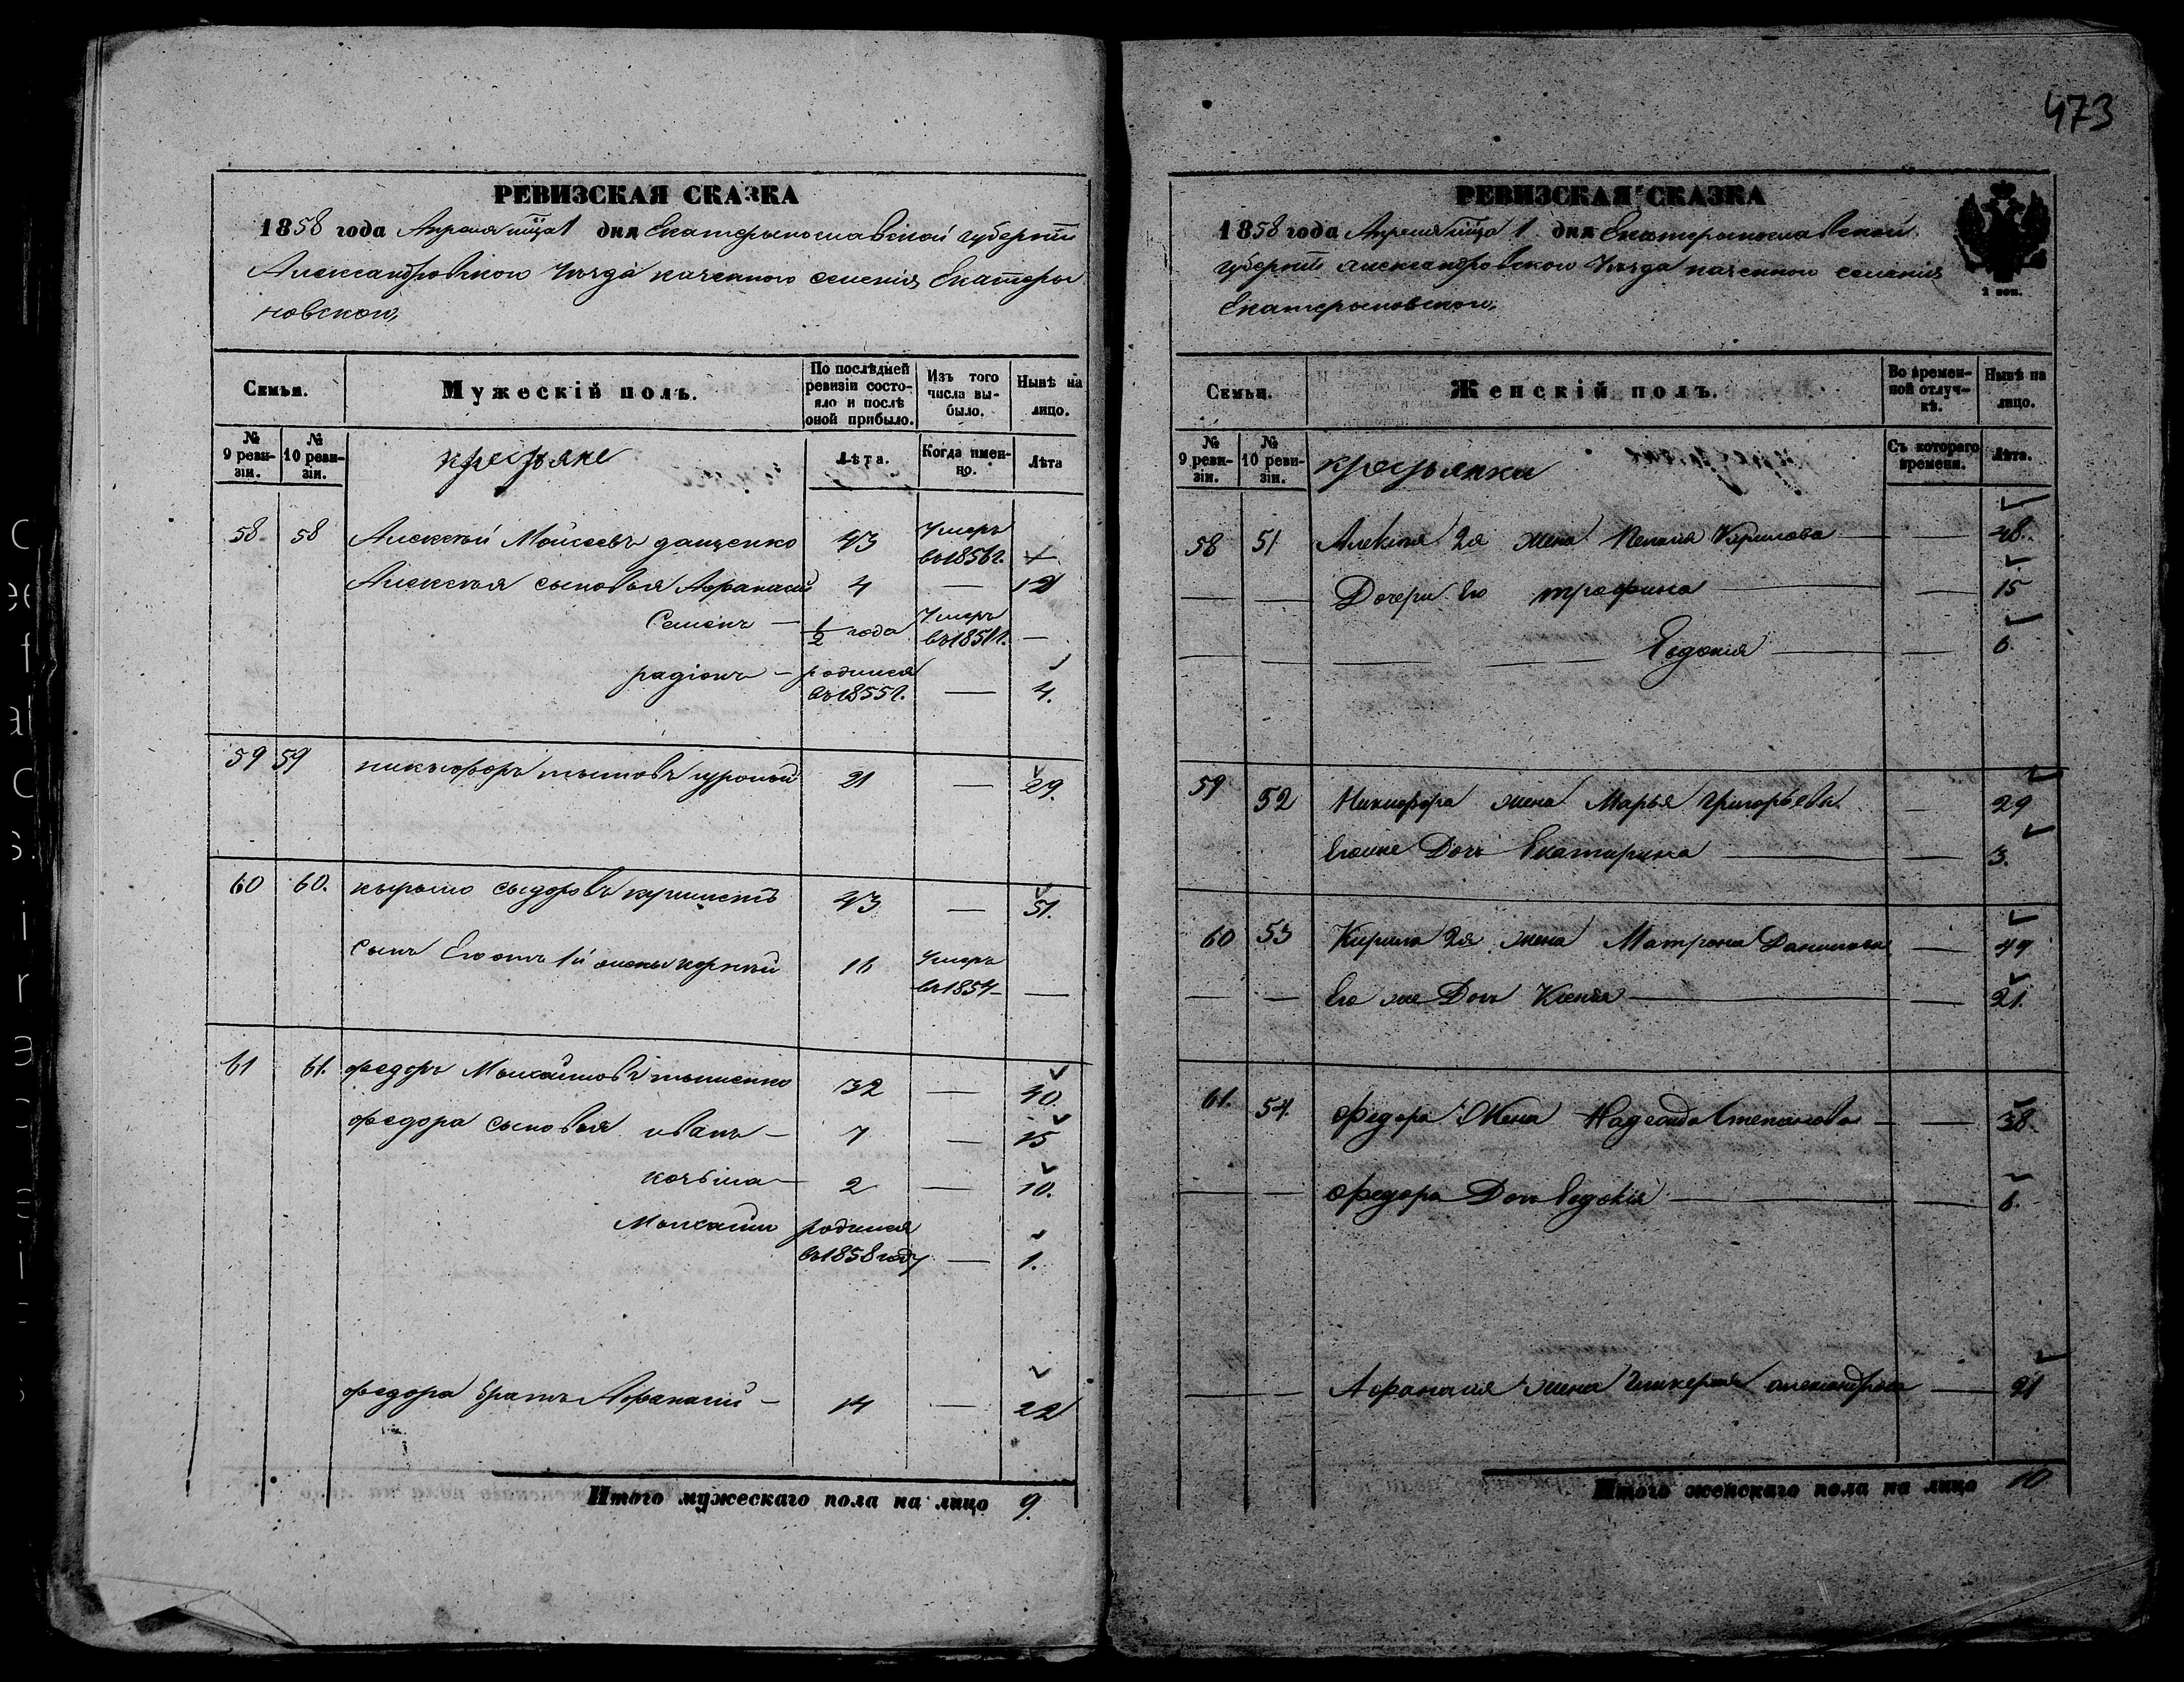 473
РЕВИЗСКАЯ СКАЗКА
1858 года Апреля мца 1 дня Екатерынославской губернии
Александровского Уѣзда казенного селения Екатеры
новского,
Семьи. Мужескій полъ. По послѣдней ревизіи состояло и послѣ оной прибыло. Изъ того числа выбыло. Нынѣ на лицо.
№ 9 ревизіи. № 10 ревизіи. крестьяне Лѣта. Когда именно. Лѣта
58 58 Алексѣй Моисеевъ даценко 43 Умеръ въ 1856г. —
Алексѣя сыновья Афанасий 4 — 12
Семенъ — 1/2 года Умеръ въ 1851г. —
радіонъ — родился въ 1855г. — 4.
59 59 никыфоръ тытовъ 21 — 29.
60 60. кырыло сыдоровъ 43 — 51.
сынъ Его отъ 1й жены корнѣй 16 Умеръ въ 1854 — —
61 61. федоръ Мыхайловъ тыщенко 32 — 40.
федора сыновья иванъ — 7 — 15
козьма — 2 — 10.
Мыхаилъ родился въ 1858 году — 1.
федора братъ Афанасий — 14 — 22
Итого мужескаго пола на лицо 9.
РЕВИЗСКАЯ СКАЗКА
1858 года Апреля мца 1 дня Екатерынославской
губернии александровского Уѣзда казенного селения
Екатерыновского,
2 коп.
Семьи. Женскій полъ. Во временной отлучкѣ. Нынѣ на лицо.
№ 9 ревизіи. № 10 ревизіи. крестьянки Съ котораго времени. Лѣта.
58 51 Алексѣя 2я жена Пелагия Кирилова — 48.
— — Дочери Его — — 15
— — — — Евдокия — — 6.
59 52 Никифора жена Марья Григорьева — 29
Его же Дочь Екатирина — — 3.
60 53 Кирила 2я жена Матрона Данилова — 44
— — Его же Дочь Ксения — — 21.
61. 54. Федора Жена Надежда Степанова — — 38.
— — Федора Дочь Евдокия — — 6.
— — Афанасия жена Гликерия александрова — 21
Итого женскаго пола на лицо 10